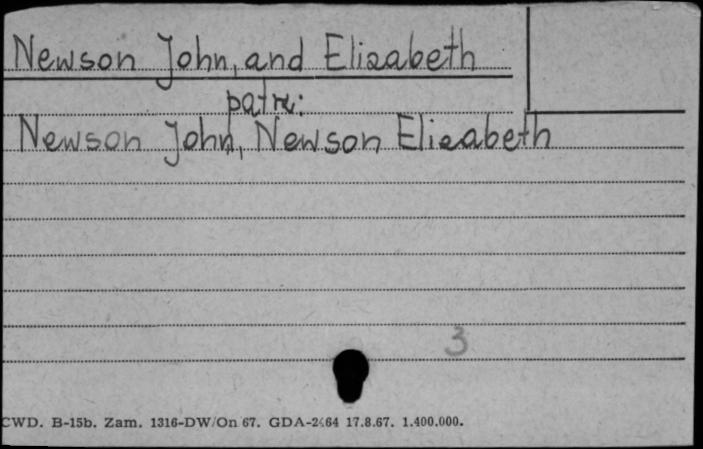 Newson John, and Elizabeth
patrz:
Newson John, Newson Elizabeth
3
CWD. B-15b. Zam. 1316-DW/On 67. GDA-2464 17.8.67. 1.400.000.